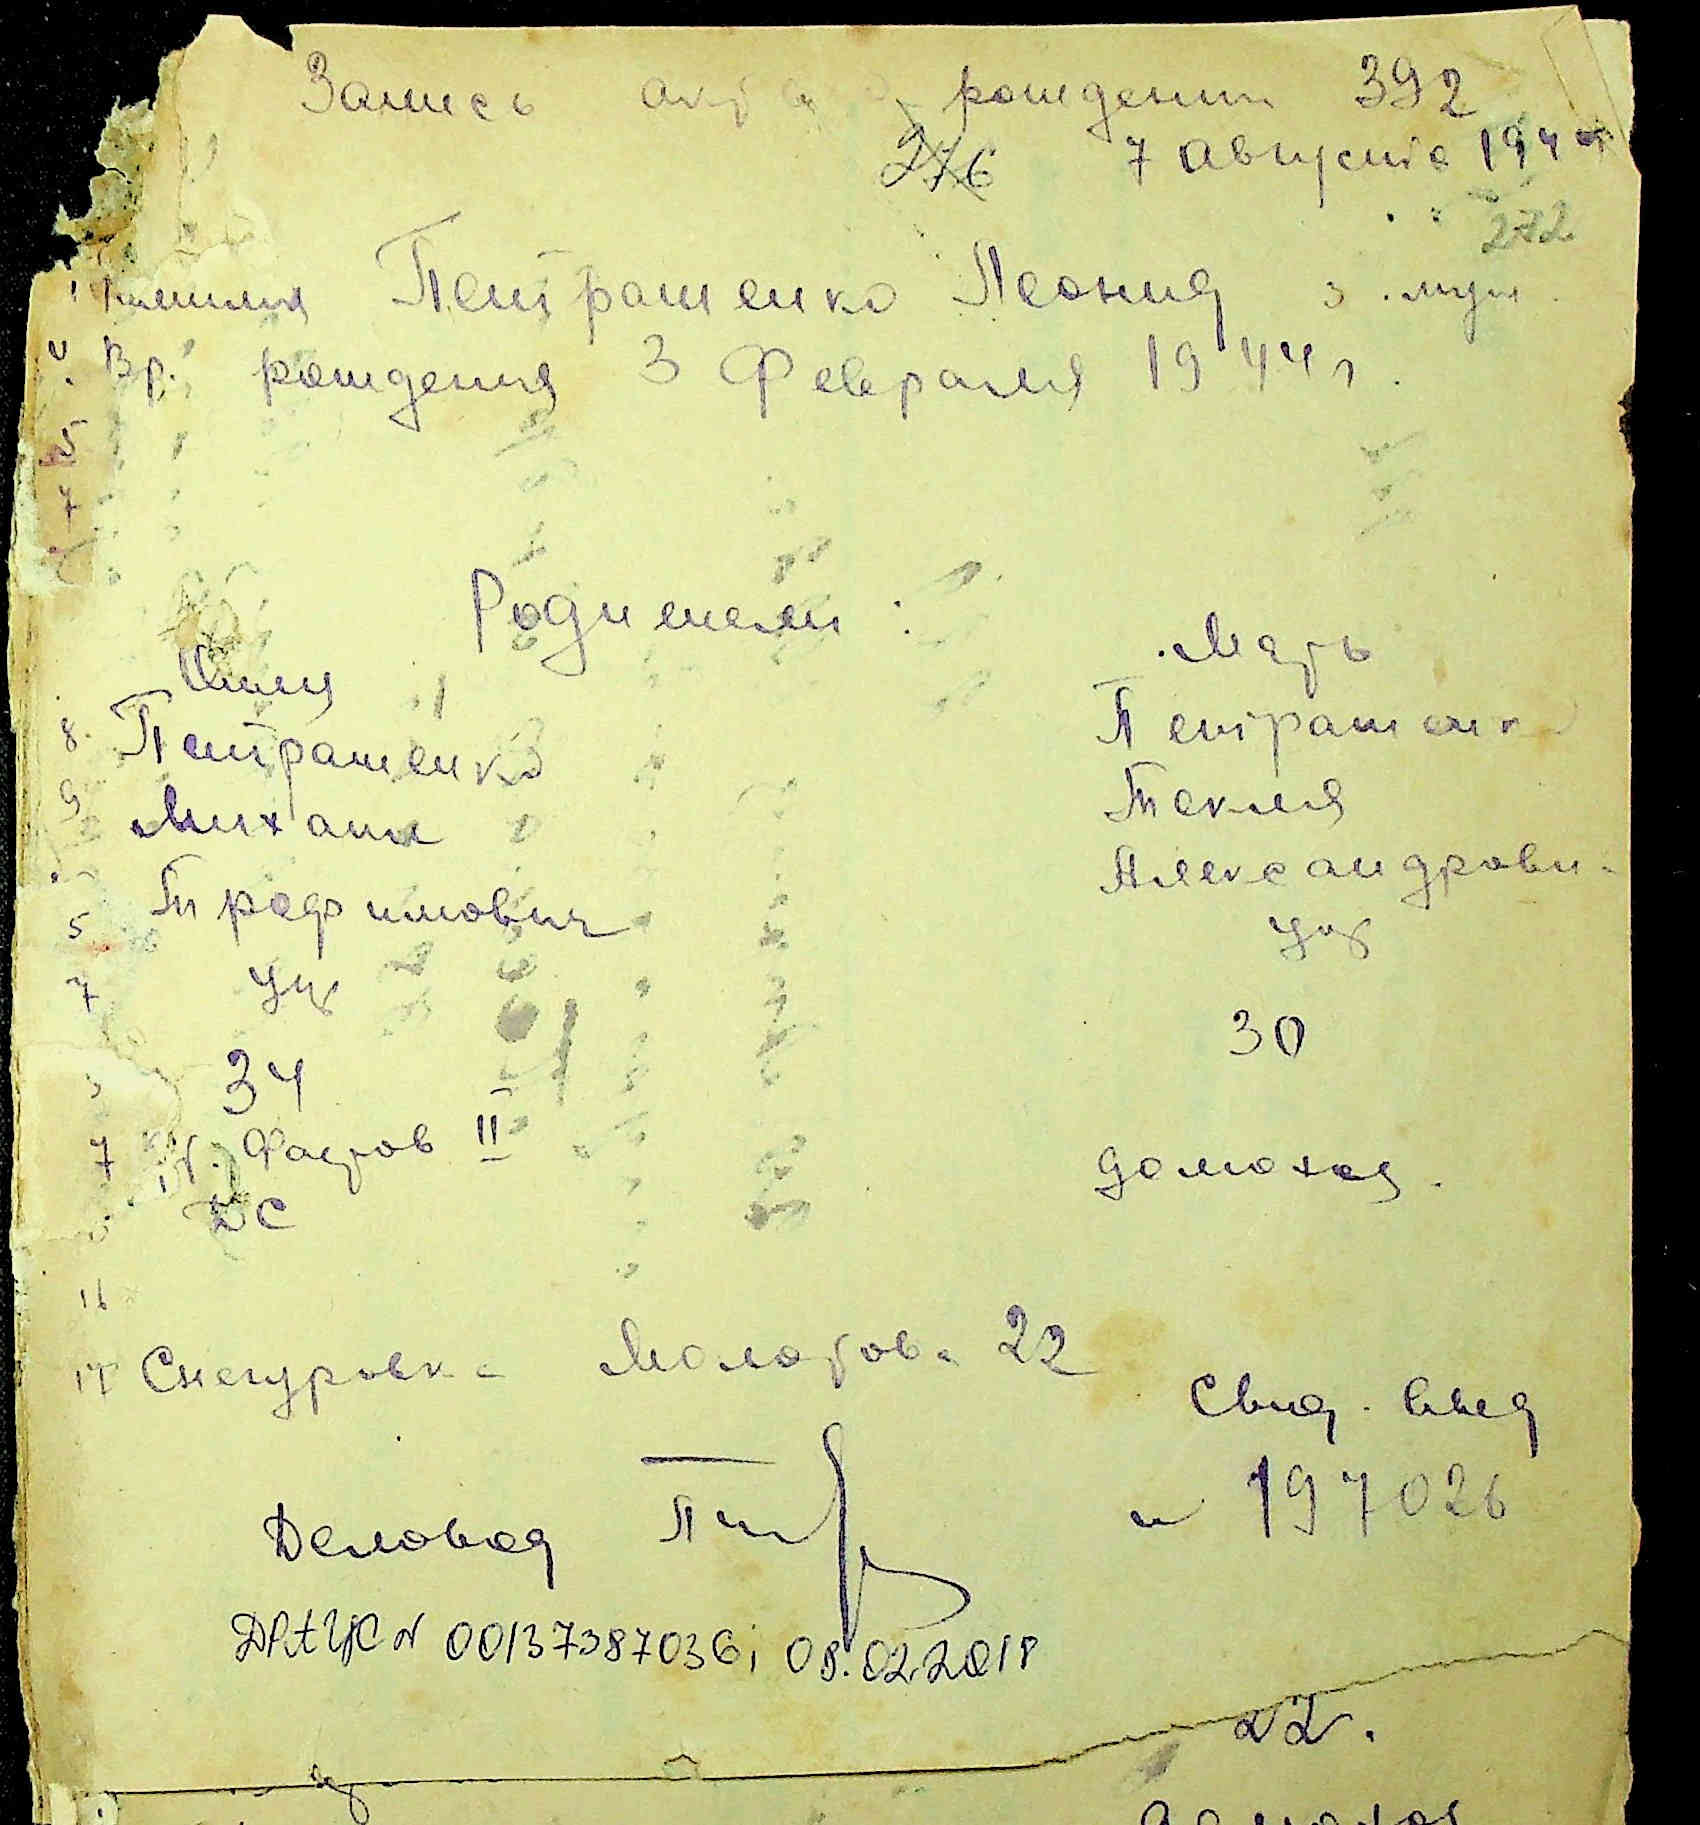 Запись акта о рождении 392
276 7 Августа 1944
272
1 Фамилия Петрашенко Леонид 3. муж.
4. Вр. рождения 3 Февраля 1944 г.
5
7
Родители:
Отец Мать
8. Петрашенко Петрашенко
9 Михаил Текля
Трофимович Александровн.
5 укр укр
7
34 30
7 Фастов II домохоз.
ДС
16
17 Снегуровка Молотова 22
Свид. выд
Деловод № 197026
ДРАЦС № 00137387036; 08.02.2018
22.
домохоз